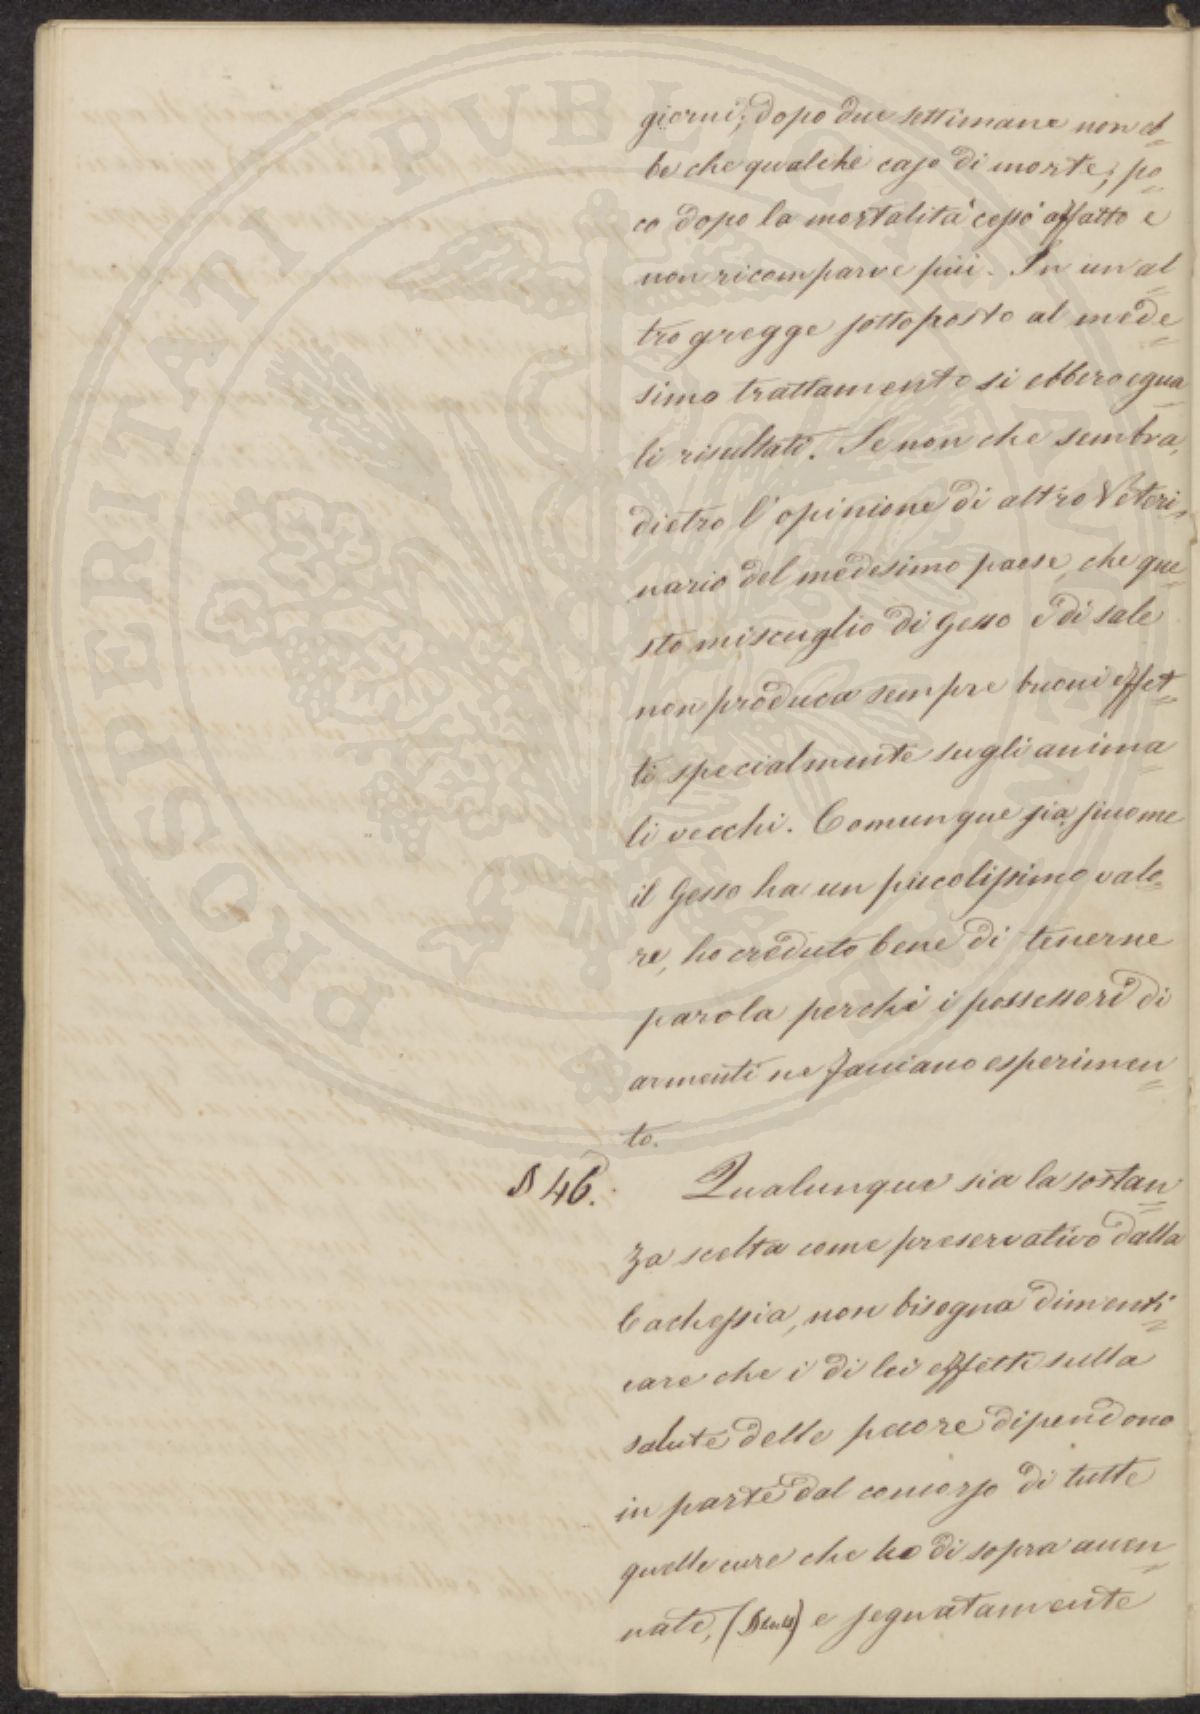 PROSPERITATI PVBLICAE AVGENDAE
giorni; dopo due settimane non eb=
be che qualche caso di morte; po=
co dopo la mortalità cessò affatto e
non ricomparve più. In un al=
tro gregge sottoposto al mede=
simo trattamento si ebbero egua=
li risultati. Se non che sembra,
dietro l'opinione di altro Veteri=
nario del medesimo paese, che que=
sto miscuglio di Gesso e di sale
non produca sempre buoni effet=
ti specialmente sugli anima=
li vecchi. Comunque sia, siccome
il Gesso ha un piccolissimo valo=
re, ho creduto bene di tenerne
parola perchè i possessori di
armenti ne facciano esperimen=
to.
§ 46. Qualunque sia la sostan=
za scelta come preservativo dalla
Cachessia, non bisogna dimenti=
care che i di lei effetti sulla
salute delle pecore dipendono
in parte dal concorso di tutte
quelle cure che ho di sopra accen=
nate, e segnatamente